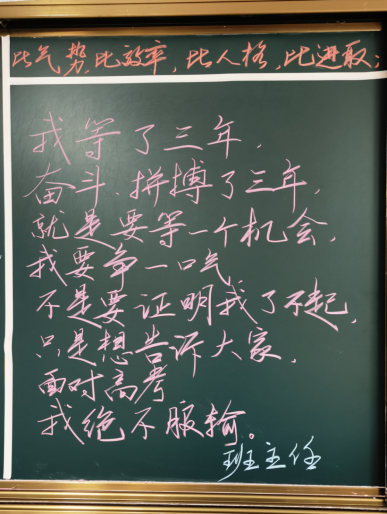 比气势,比效率,比人格,比进取;
我等了三年,
奋斗、拼搏了三年,
就是要等一个机会,
我要争一口气
不是要证明我了不起,
只是想告诉大家,
面对高考
我绝不服输。
班主任